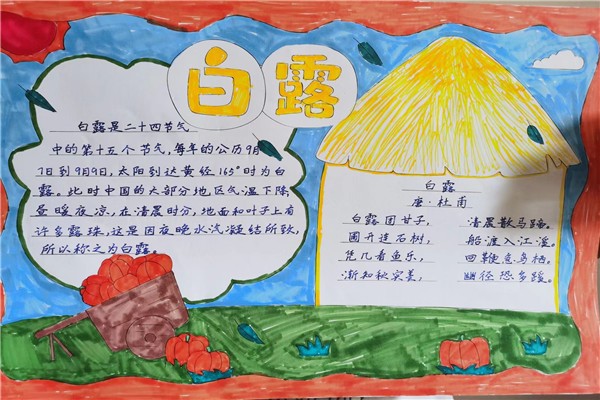 白露
白露是二十四节气
中的第十五个节气,每年的公历9月
7日到9月9日,太阳到达黄经165°时为白
露。此时中国的大部分地区气温下降,
昼暖夜凉,在清晨时分,地面和叶子上有
许多露珠,这是因夜晚水汽凝结所致,
所以称之为白露。
白露
唐·杜甫
白露团甘子, 清晨散马蹄。
圃开连石树, 船渡入江溪。
凭几看鱼乐, 回鞭急鸟栖。
渐知秋实美, 幽径恐多蹊。